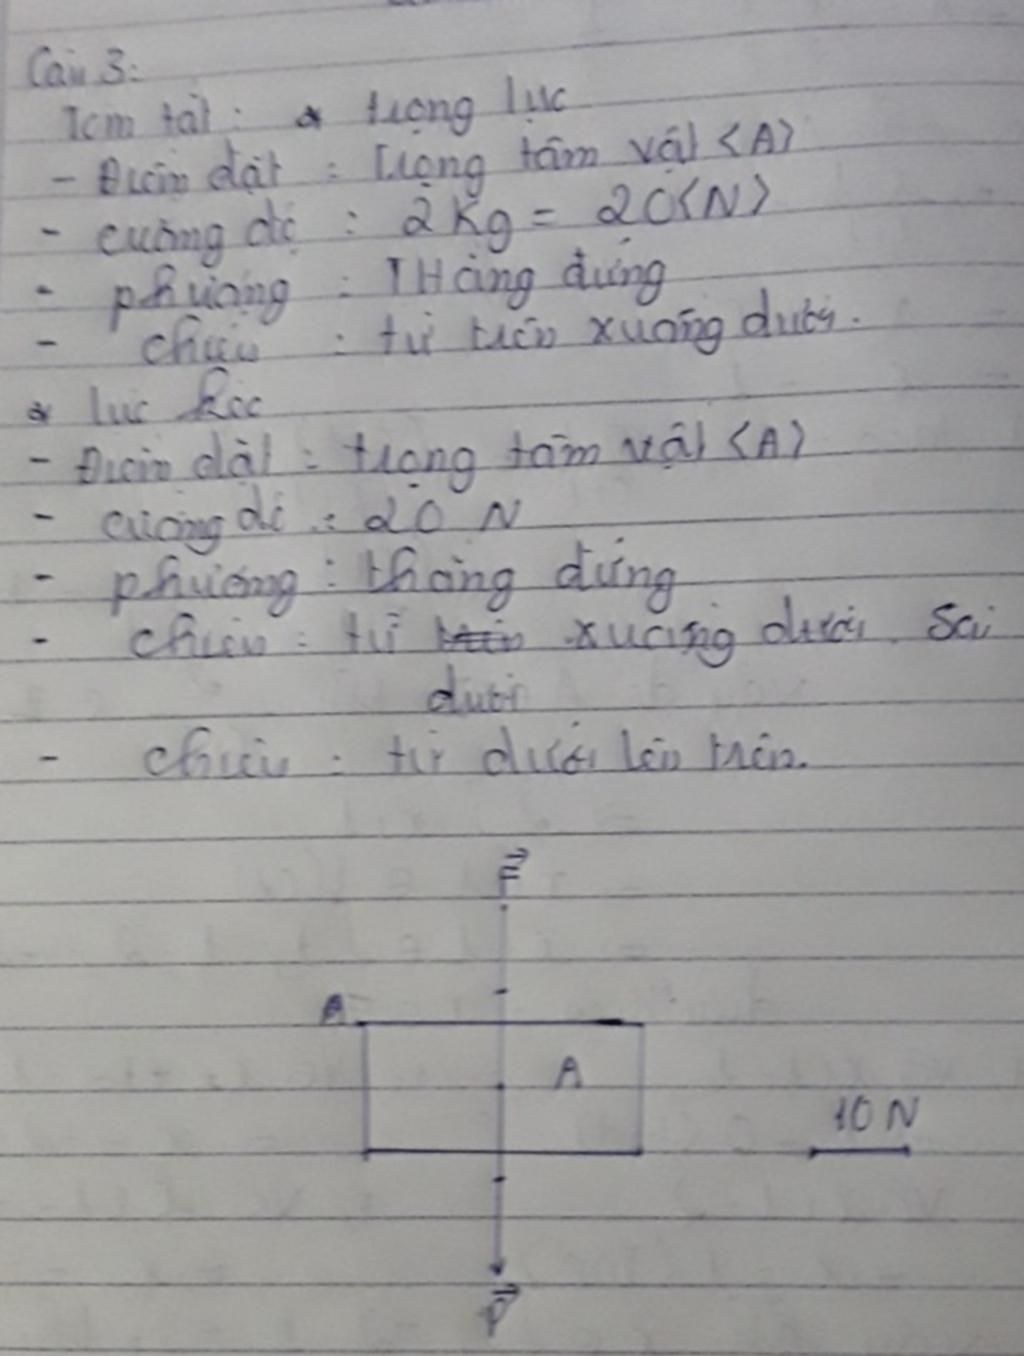 Câu 3:
Tóm tắt: * trọng lực
- Điểm đặt : Trọng tâm vật <A>
- cường độ : 2Kg = 20<N>
- phương : THẳng đứng
- chiều : từ trên xuống dưới.
* lực kéo
- Điểm đặt : trọng tâm vật <A>
- cường độ : 20 N
- phương : thẳng đứng
- chiều : từ trên xuống dưới. Sai
dưới
- chiều : từ dưới lên trên.
F
A
A
10 N
P